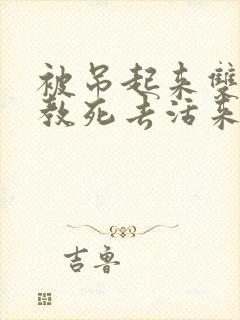 被吊起来双
教死去活来
吉鲁